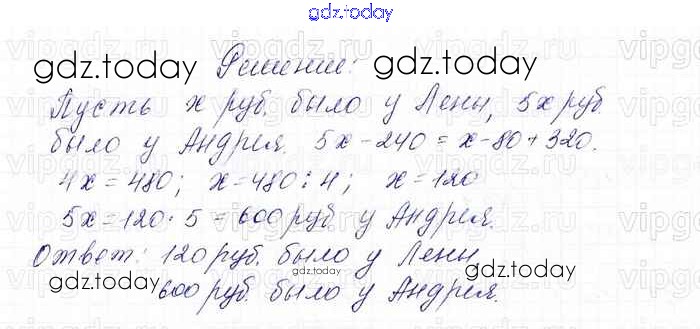 gdz.today
gdz.today Решение: gdz.today
Пусть x руб. было у Лены, 5x руб.
было у Андрея. 5x - 240 = x - 80 + 320.
4x = 480; x = 480 : 4; x = 120
5x = 120 · 5 = 600 руб. у Андрея.
Ответ: 120 руб. было у Лены
gdz.today gdz.today gdz.today
600 руб. было у Андрея.